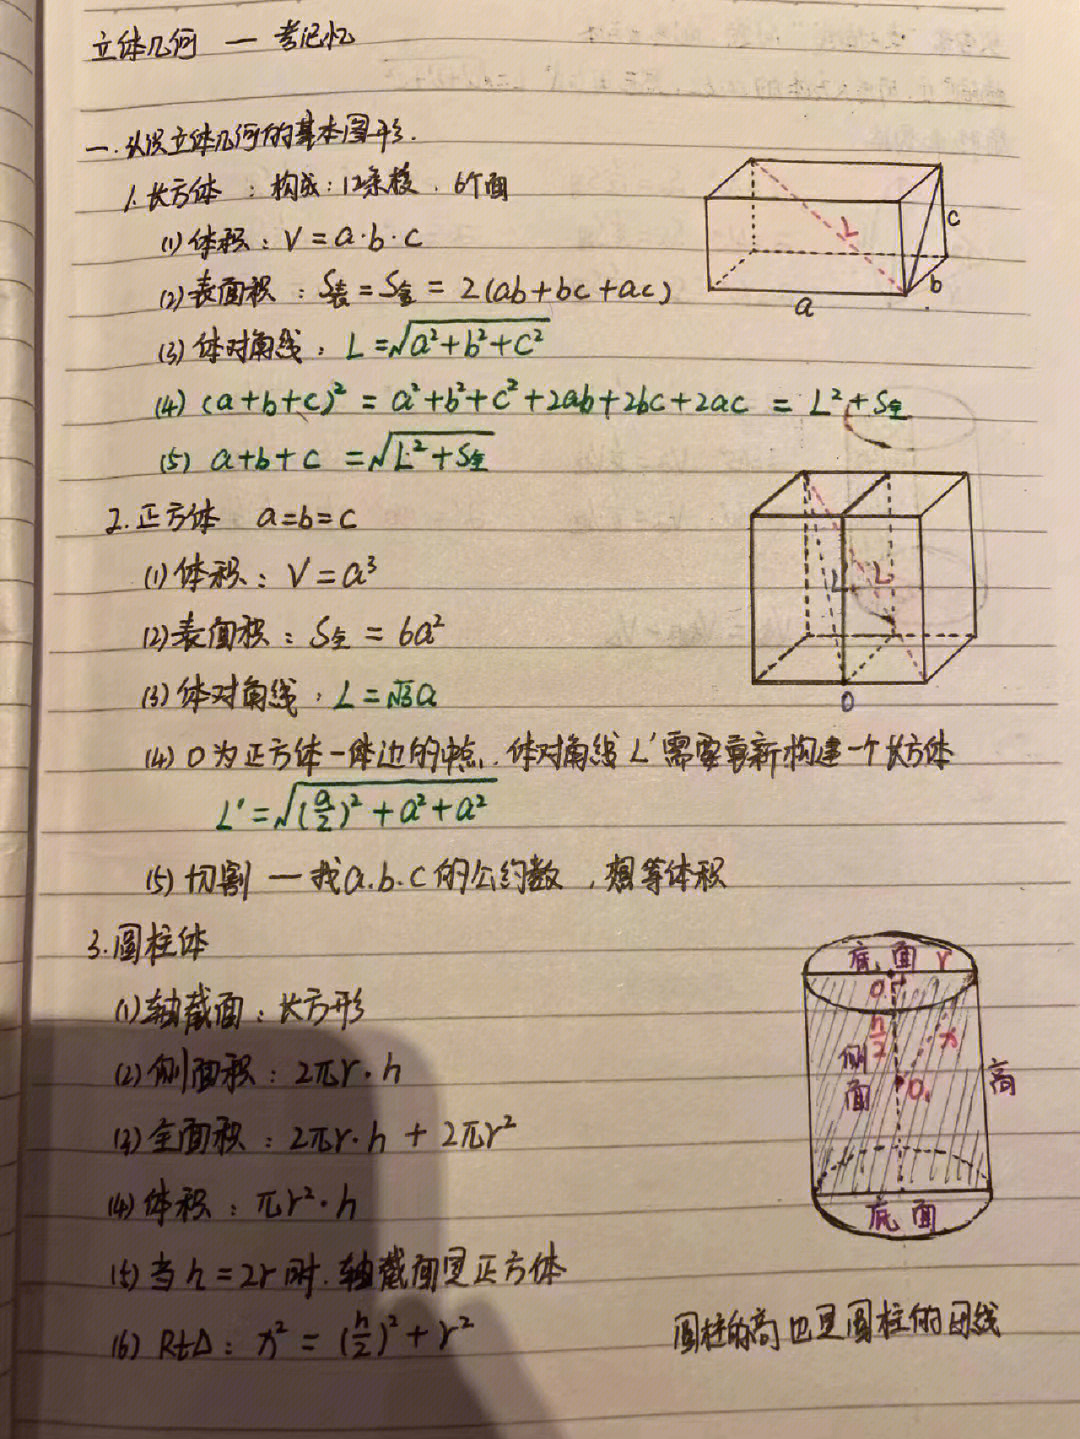 立体几何 — 考记忆
一. 认识立体几何的基本图形.
1. 长方体 : 构成 : 12条棱 . 6个面
(1) 体积 : V = a·b·c
(2) 表面积 : S表 = S全 = 2(ab+bc+ac)
(3) 体对角线 : L = √(a²+b²+c²)
(4) (a+b+c)² = a²+b²+c²+2ab+2bc+2ac = L²+S全
(5) a+b+c = √(L²+S全)
L
c
b
a
2. 正方体 a=b=c
(1) 体积 : V = a³
(2) 表面积 : S全 = 6a²
(3) 体对角线 : L = √3a
(4) O为正方体一体边的中点. 体对角线L′需要重新构建一个长方体
L′ = √((a/2)²+a²+a²)
(5) 切割 — 找a.b.c的公约数 , 想等体积
L′
L
O
3. 圆柱体
(1) 轴截面 : 长方形
(2) 侧面积 : 2πr·h
(3) 全面积 : 2πr·h + 2πr²
(4) 体积 : πr²·h
(5) 当h=2r时. 轴截面是正方体
(6) Rt△ : x² = (h/2)² + r²
底面 r
O
h/2
x
侧面
O₁
高
底面
圆柱的高也是圆柱的母线